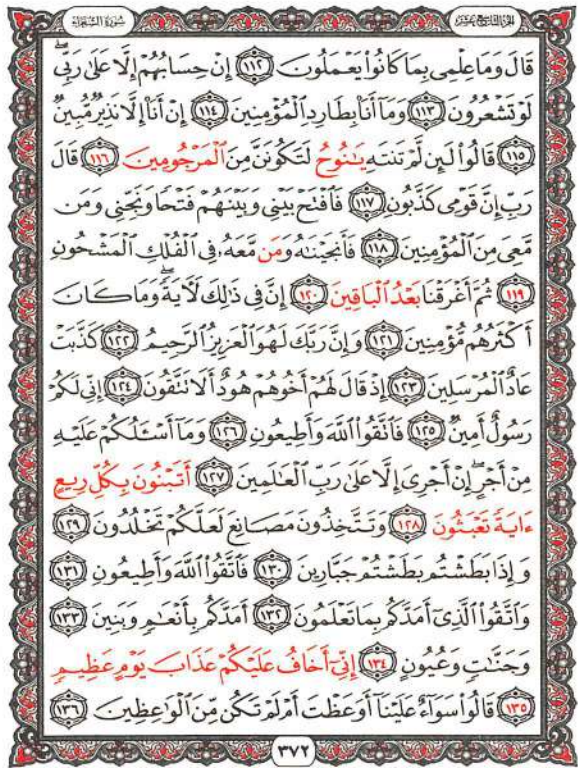 الجُزْءُ التَّاسِعَ عَشَرَ
سُورَةُ الشُّعَرَاءِ
قَالَ وَمَا عِلْمِى بِمَا كَانُوا۟ يَعْمَلُونَ ١١٢ إِنْ حِسَابُهُمْ إِلَّا عَلَىٰ رَبِّىۖ
لَوْ تَشْعُرُونَ ١١٣ وَمَآ أَنَا۠ بِطَارِدِ ٱلْمُؤْمِنِينَ ١١٤ إِنْ أَنَا۠ إِلَّا نَذِيرٌ مُّبِينٌ
١١٥ قَالُوا۟ لَئِن لَّمْ تَنتَهِ يَـٰنُوحُ لَتَكُونَنَّ مِنَ ٱلْمَرْجُومِينَ ١١٦ قَالَ
رَبِّ إِنَّ قَوْمِى كَذَّبُونِ ١١٧ فَٱفْتَحْ بَيْنِى وَبَيْنَهُمْ فَتْحًا وَنَجِّنِى وَمَن
مَّعِىَ مِنَ ٱلْمُؤْمِنِينَ ١١٨ فَأَنجَيْنَـٰهُ وَمَن مَّعَهُۥ فِى ٱلْفُلْكِ ٱلْمَشْحُونِ
١١٩ ثُمَّ أَغْرَقْنَا بَعْدُ ٱلْبَاقِينَ ١٢٠ إِنَّ فِى ذَٰلِكَ لَـَٔايَةًۖ وَمَا كَانَ
أَكْثَرُهُم مُّؤْمِنِينَ ١٢١ وَإِنَّ رَبَّكَ لَهُوَ ٱلْعَزِيزُ ٱلرَّحِيمُ ١٢٢ كَذَّبَتْ
عَادٌ ٱلْمُرْسَلِينَ ١٢٣ إِذْ قَالَ لَهُمْ أَخُوهُمْ هُودٌ أَلَا تَتَّقُونَ ١٢٤ إِنِّى لَكُمْ
رَسُولٌ أَمِينٌ ١٢٥ فَٱتَّقُوا۟ ٱللَّهَ وَأَطِيعُونِ ١٢٦ وَمَآ أَسْـَٔلُكُمْ عَلَيْهِ
مِنْ أَجْرٍۖ إِنْ أَجْرِىَ إِلَّا عَلَىٰ رَبِّ ٱلْعَـٰلَمِينَ ١٢٧ أَتَبْنُونَ بِكُلِّ رِيعٍ
ءَايَةً تَعْبَثُونَ ١٢٨ وَتَتَّخِذُونَ مَصَانِعَ لَعَلَّكُمْ تَخْلُدُونَ ١٢٩
وَإِذَا بَطَشْتُم بَطَشْتُمْ جَبَّارِينَ ١٣٠ فَٱتَّقُوا۟ ٱللَّهَ وَأَطِيعُونِ ١٣١
وَٱتَّقُوا۟ ٱلَّذِىٓ أَمَدَّكُم بِمَا تَعْلَمُونَ ١٣٢ أَمَدَّكُم بِأَنْعَـٰمٍ وَبَنِينَ ١٣٣
وَجَنَّـٰتٍ وَعُيُونٍ ١٣٤ إِنِّىٓ أَخَافُ عَلَيْكُمْ عَذَابَ يَوْمٍ عَظِيمٍ
١٣٥ قَالُوا۟ سَوَآءٌ عَلَيْنَآ أَوَعَظْتَ أَمْ لَمْ تَكُن مِّنَ ٱلْوَٰعِظِينَ ١٣٦
٣٧٢